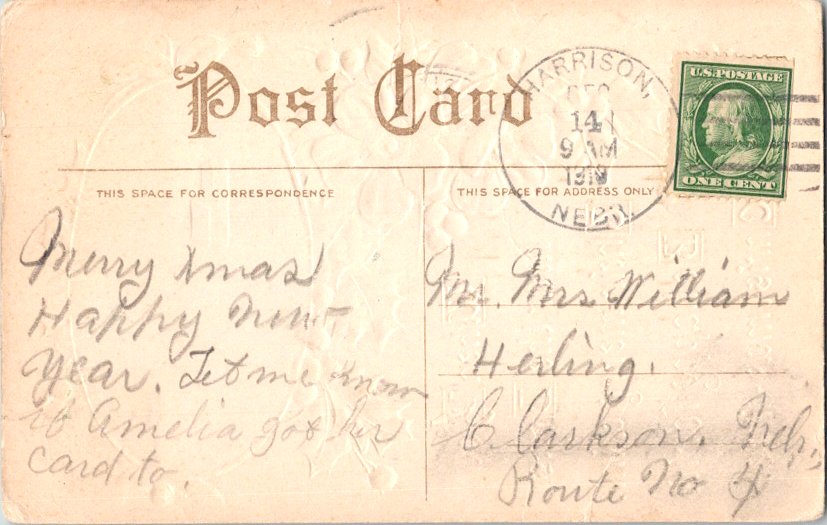 Post Card
HARRISON,
DEC
14
9 AM
NEBR.
U.S. POSTAGE
ONE CENT
THIS SPACE FOR CORRESPONDENCE
THIS SPACE FOR ADDRESS ONLY
Merry Xmas
Happy New
Year. Let me know
if Amelia got her
card to.
Mr. Mrs William
Herling.
Clarkson, Nebr.,
Route No 4